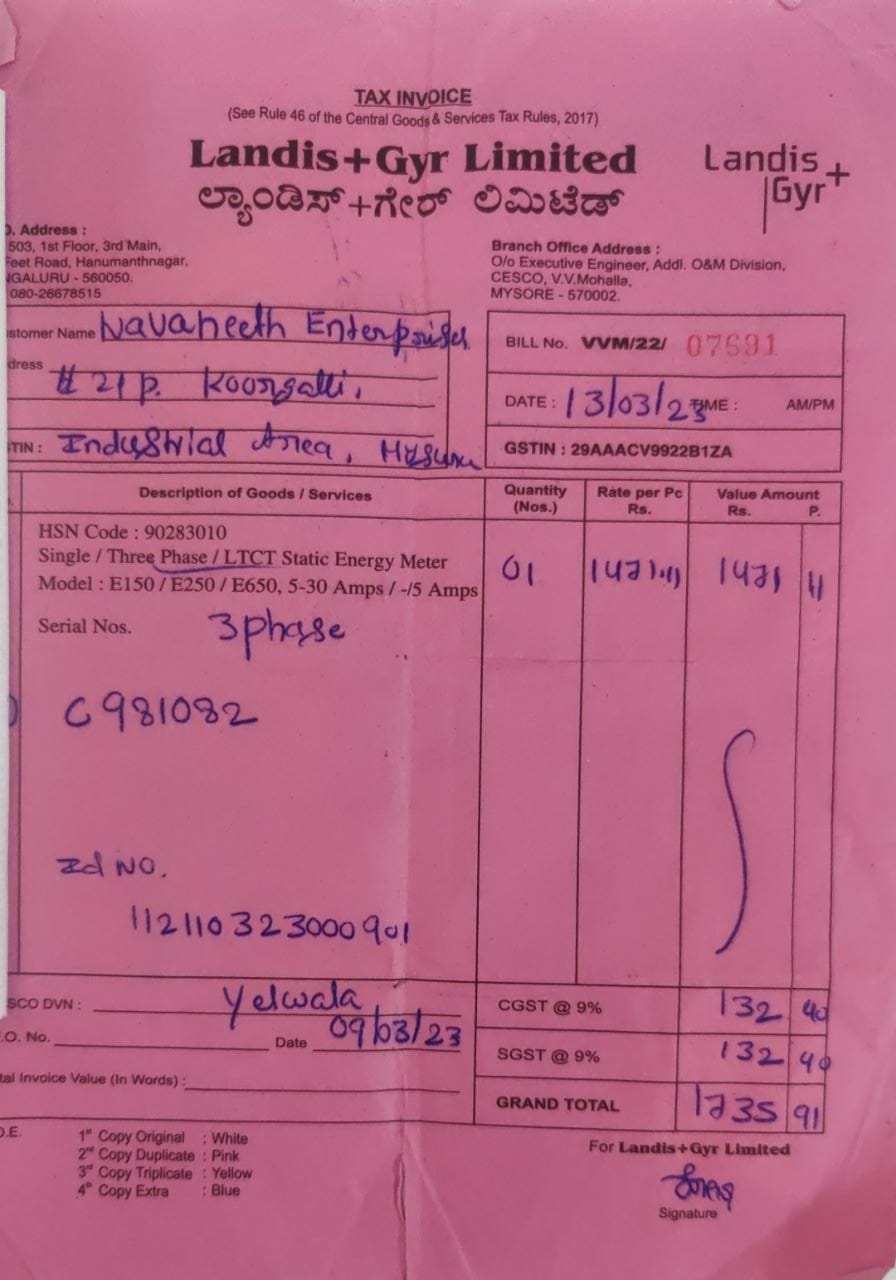 TAX INVOICE
(See Rule 46 of the Central Goods & Services Tax Rules, 2017)
Landis+Gyr Limited
Landis+
Gyr
ಲ್ಯಾಂಡಿಸ್+ಗೇರ್ ಲಿಮಿಟೆಡ್
. Address :
503, 1st Floor, 3rd Main,
Feet Road, Hanumanthnagar,
GALURU - 560050.
080-26678515
Branch Office Address :
O/o Executive Engineer, Addl. O&M Division,
CESCO, V.V.Mohalla,
MYSORE - 570002.
stomer Name Navaneeth Enterprises
dress # 21p. Koorgalli,
TIN : Industrial Area, Mysuru
BILL No. VVM/22/ 07691
DATE : 13/03/23 TIME : AM/PM
GSTIN : 29AAACV9922B1ZA
Description of Goods / Services
Quantity (Nos.)
Rate per Pc Rs.
Value Amount Rs. P.
HSN Code : 90283010
Single / Three Phase / LTCT Static Energy Meter
Model : E150 / E250 / E650, 5-30 Amps / -/5 Amps
01 1471.11 1471 11
Serial Nos. 3phase
C981082
Id NO.
112110323000901
SCO DVN : Yelwala
.O. No. Date 09/03/23
tal Invoice Value (In Words) :
CGST @ 9% 132 40
SGST @ 9% 132 40
GRAND TOTAL 1735 91
.E.
1st Copy Original : White
2nd Copy Duplicate : Pink
3rd Copy Triplicate : Yellow
4th Copy Extra : Blue
For Landis+Gyr Limited
Signature